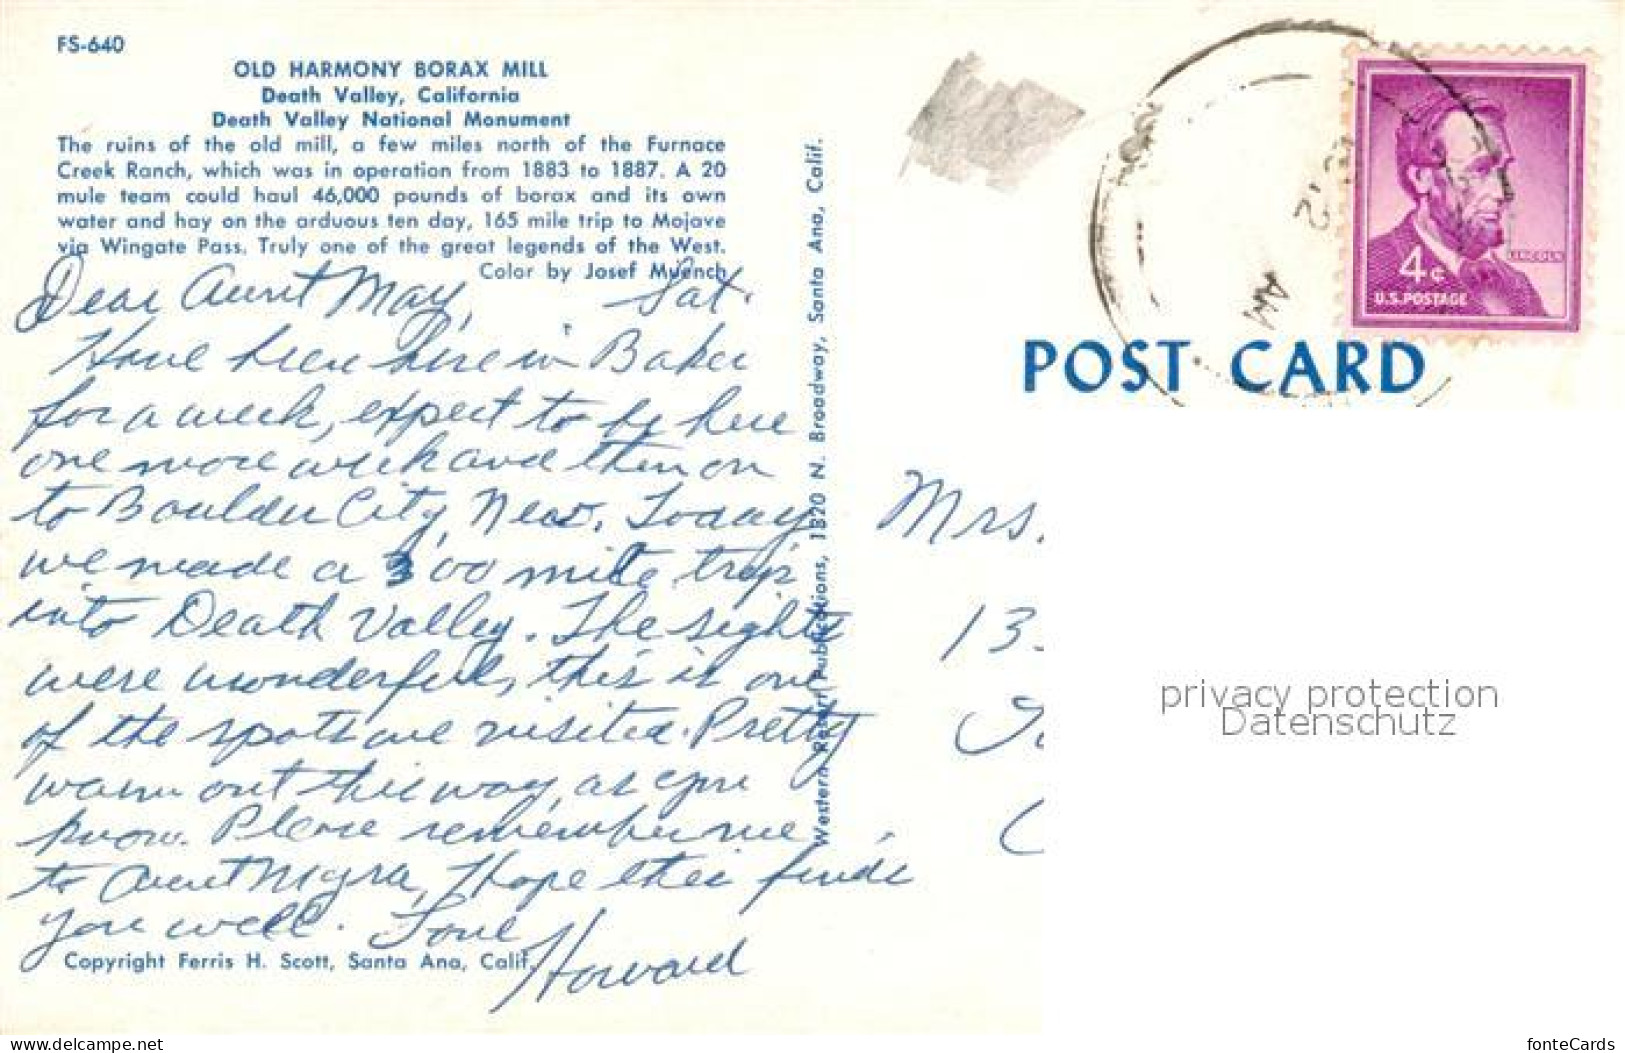 FS-640
OLD HARMONY BORAX MILL
Death Valley, California
Death Valley National Monument
The ruins of the old mill, a few miles north of the Furnace
Creek Ranch, which was in operation from 1883 to 1887. A 20
mule team could haul 46,000 pounds of borax and its own
water and hay on the arduous ten day, 165 mile trip to Mojave
via Wingate Pass. Truly one of the great legends of the West.
Color by Josef Muench
Dear Aunt May, Sat.
Have been here in Baker
for a week, expect to be here
one more week and then on
to Boulder City, Nev. Today
we made a 300 mile trip
into Death Valley. The sights
were wonderful, this is one
of the spots we visited. Pretty
warm out this way, as you
know. Please remember me
to Aunt Myra, I hope this finds
you well. Love
Howard
Copyright Ferris H. Scott, Santa Ana, Calif.
Western Resort Publications, 1820 N. Broadway, Santa Ana, Calif.
AM
4¢
U.S. POSTAGE
LINCOLN
POST CARD
Mrs.
13
privacy protection
Datenschutz
www.delcampe.net
fonteCards